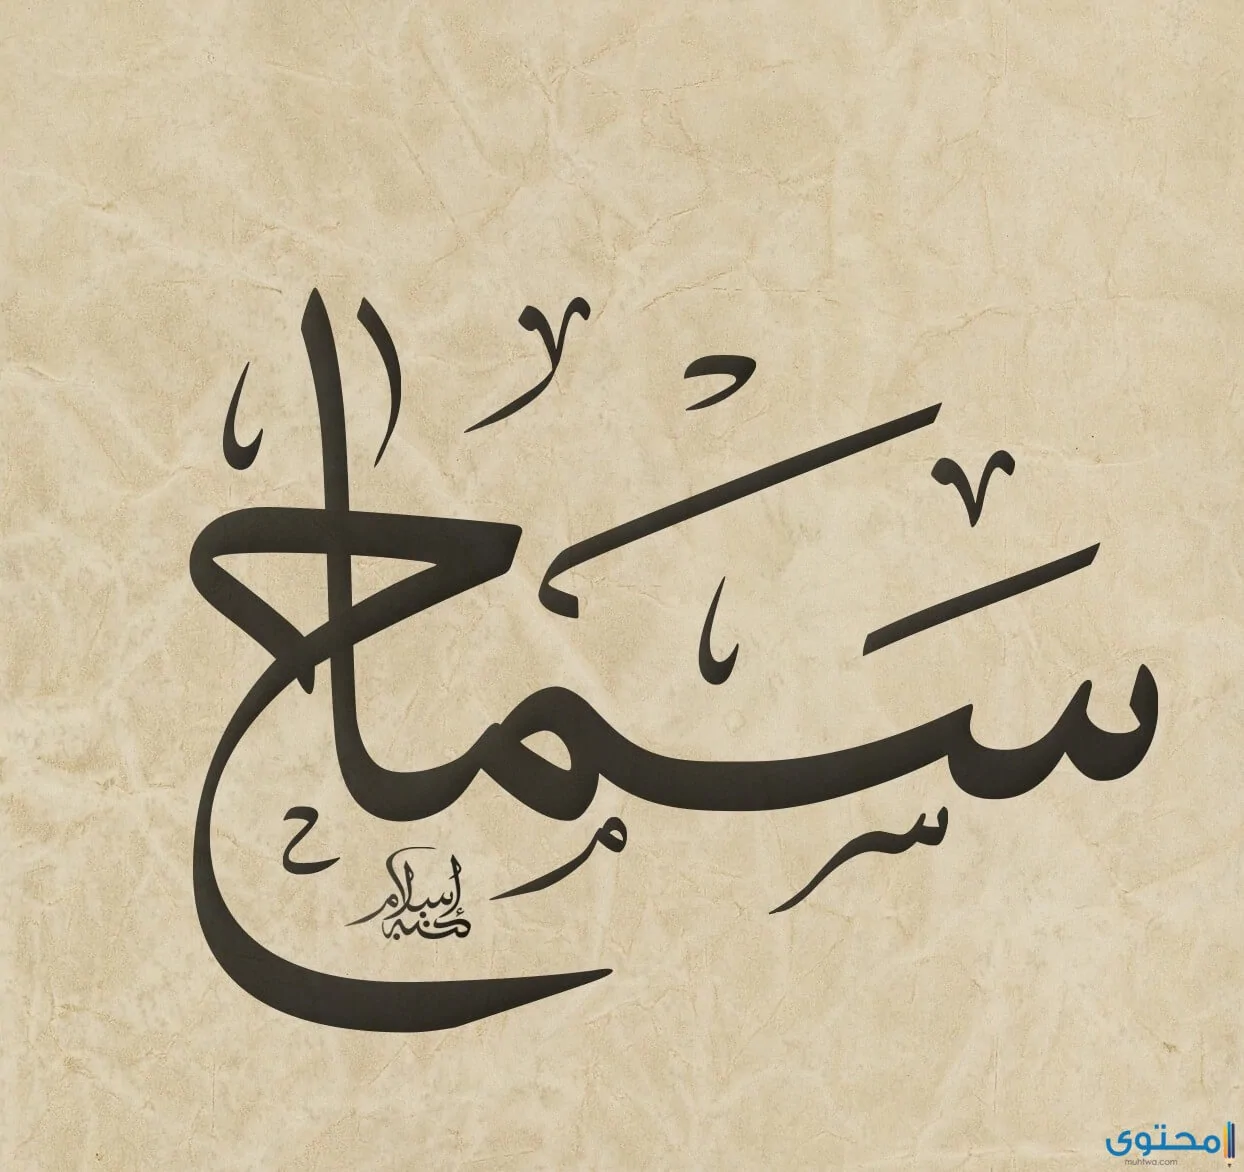 سماح
كتبه إسلام
محتوى
muhtwa.com